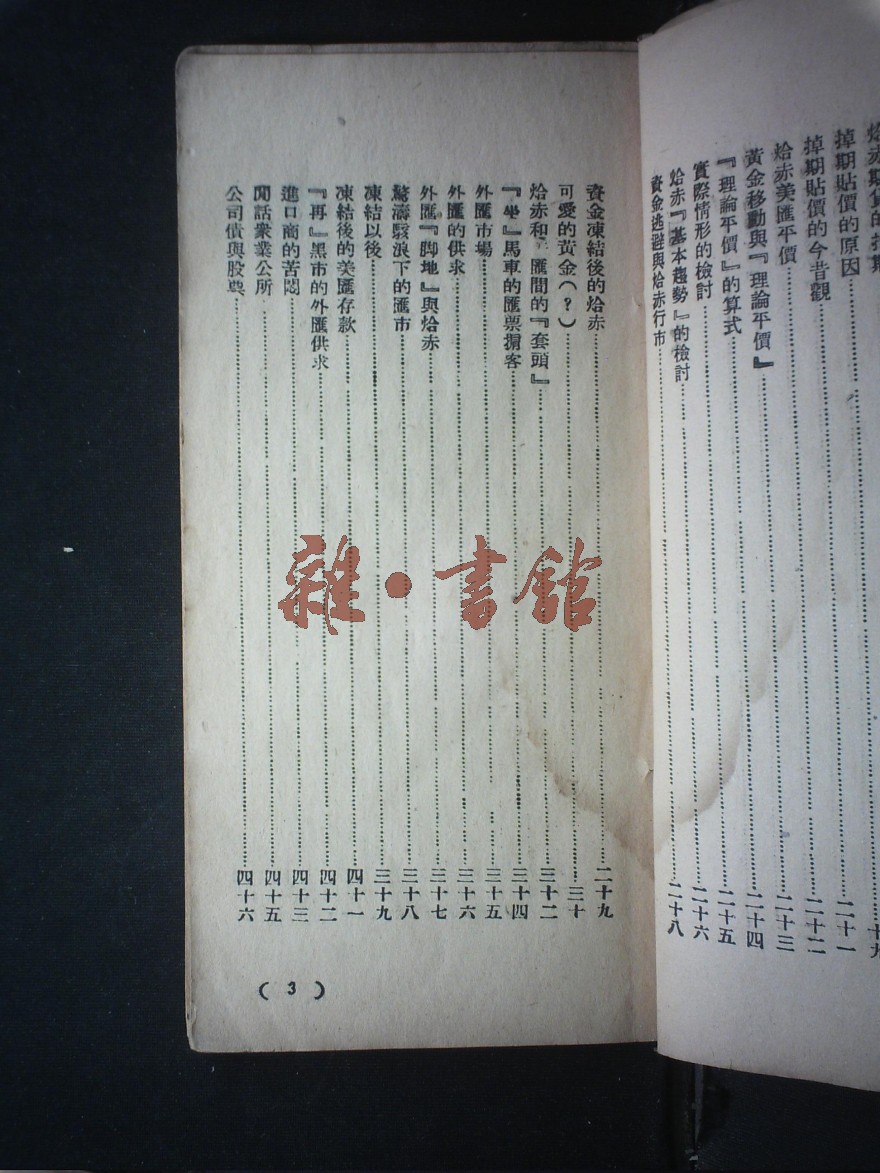 掉期貼價的原因……二十一
掉期貼價的今昔觀……二十二
烚赤美匯平價……二十三
黃金移動與『理論平價』……二十四
『理論平價』的算式……二十五
實際情形的檢討……二十六
烚赤『基本趨勢』的檢討……二十八
資金逃避與烚赤行市……
資金凍結後的烚赤……二十九
可愛的黃金(?)……三十
烚赤和 匯間的『套頭』……三十二
『 』馬車的匯票掮客……三十四
外匯市場……三十五
外匯的供求……三十六
外匯『脚地』與烚赤……三十七
驚濤駭浪下的匯市……三十八
凍結以後……三十九
凍結後的美匯存款……四十一
『再』黑市的外匯供求……四十二
進口商的苦悶……四十三
閒話衆業公所……四十五
公司債與股票……四十六
( 3 )
雜·書館